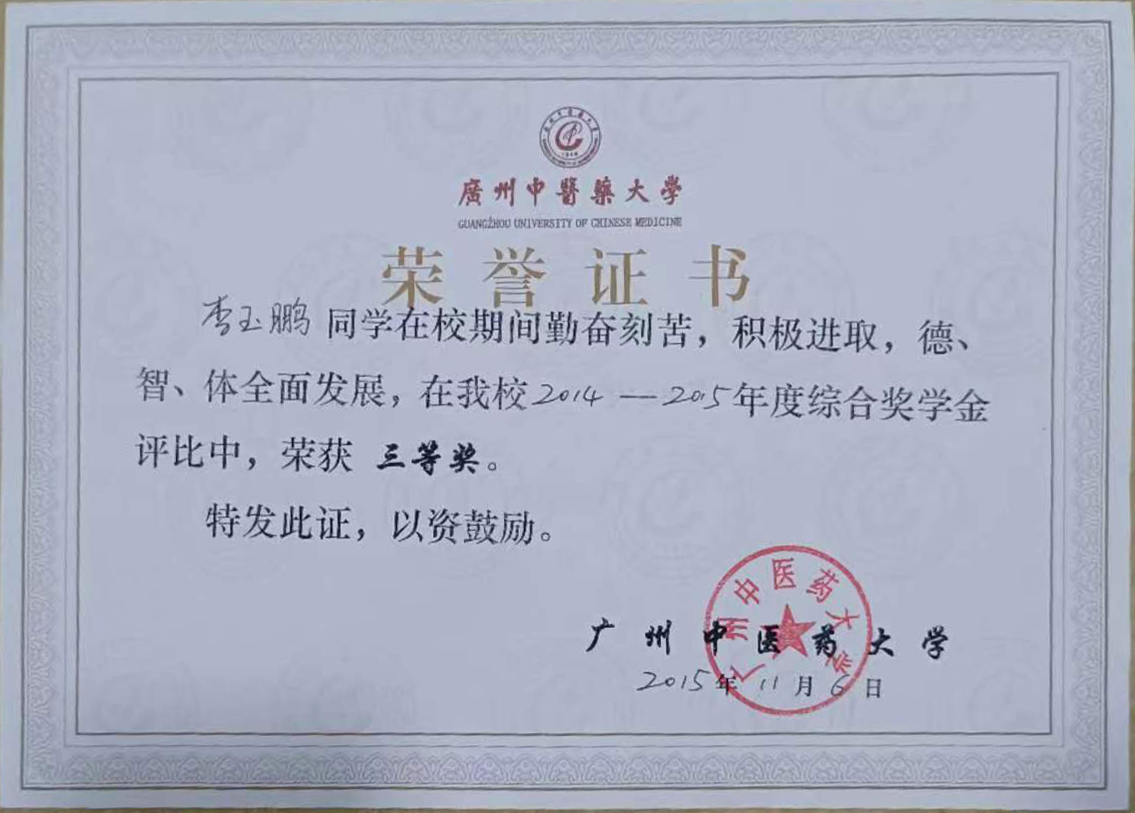 廣州中醫藥大學
GUANGZHOU UNIVERSITY OF CHINESE MEDICINE
荣誉证书
李玉鹏同学在校期间勤奋刻苦，积极进取，德、
智、体全面发展，在我校2014—2015年度综合奖学金
评比中，荣获 三等奖。
特发此证，以资鼓励。
广州中医药大学
广州中医药大学
2015年11月6日